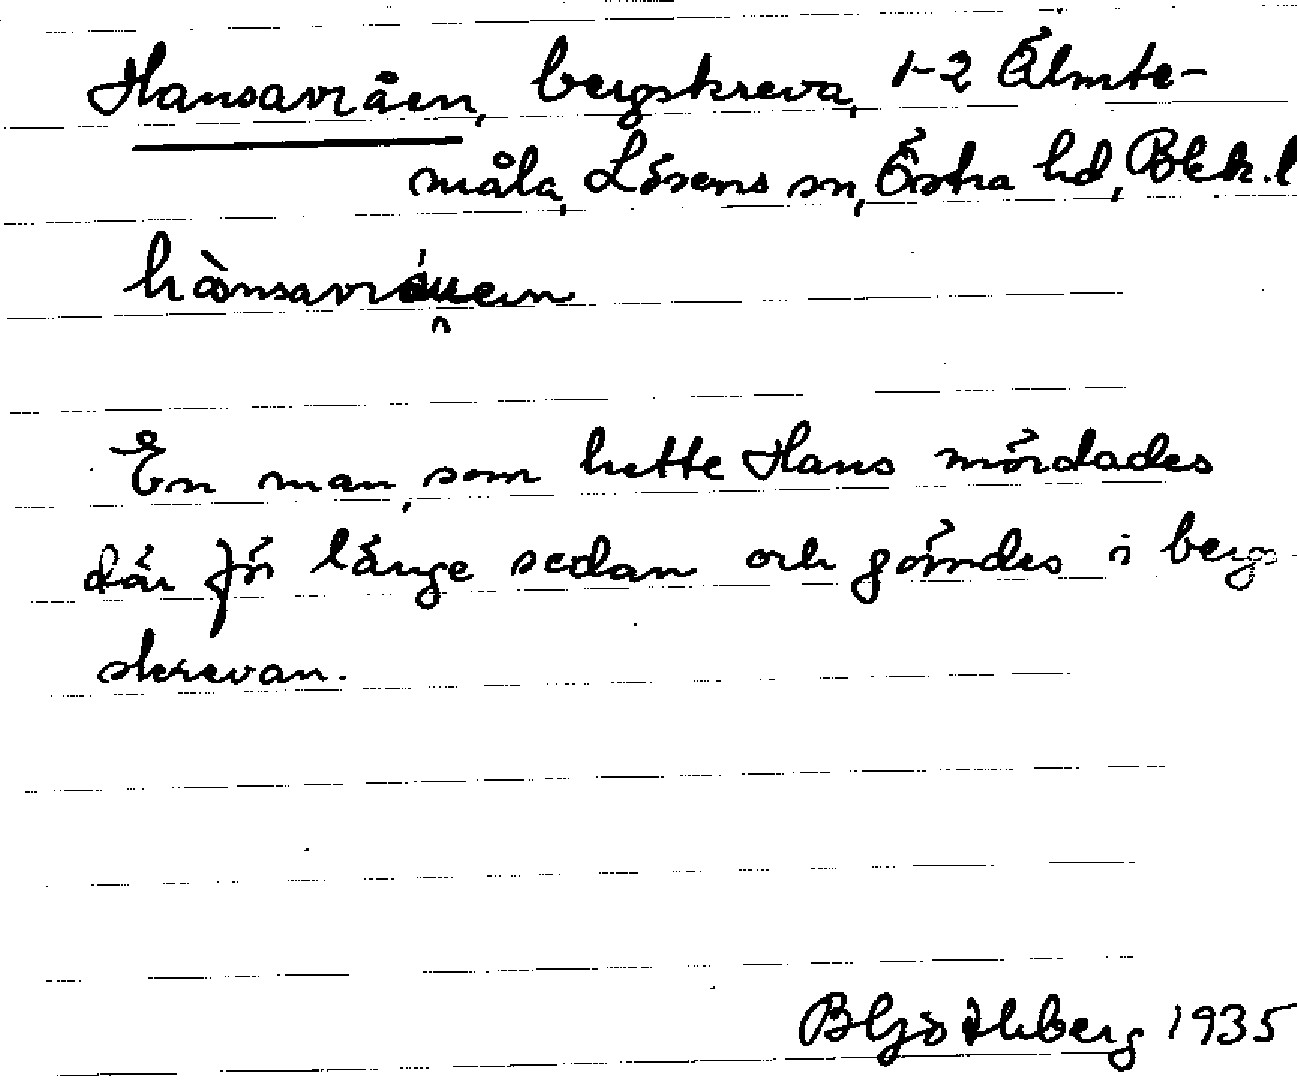 Hansavråen, bergskreva, 1-2 Älmte-
måla, Lösens sn, Östra hd, Blek. l
En man, som hette Hans mördades
där för länge sedan och gömdes i bergs
skrevan.
1935